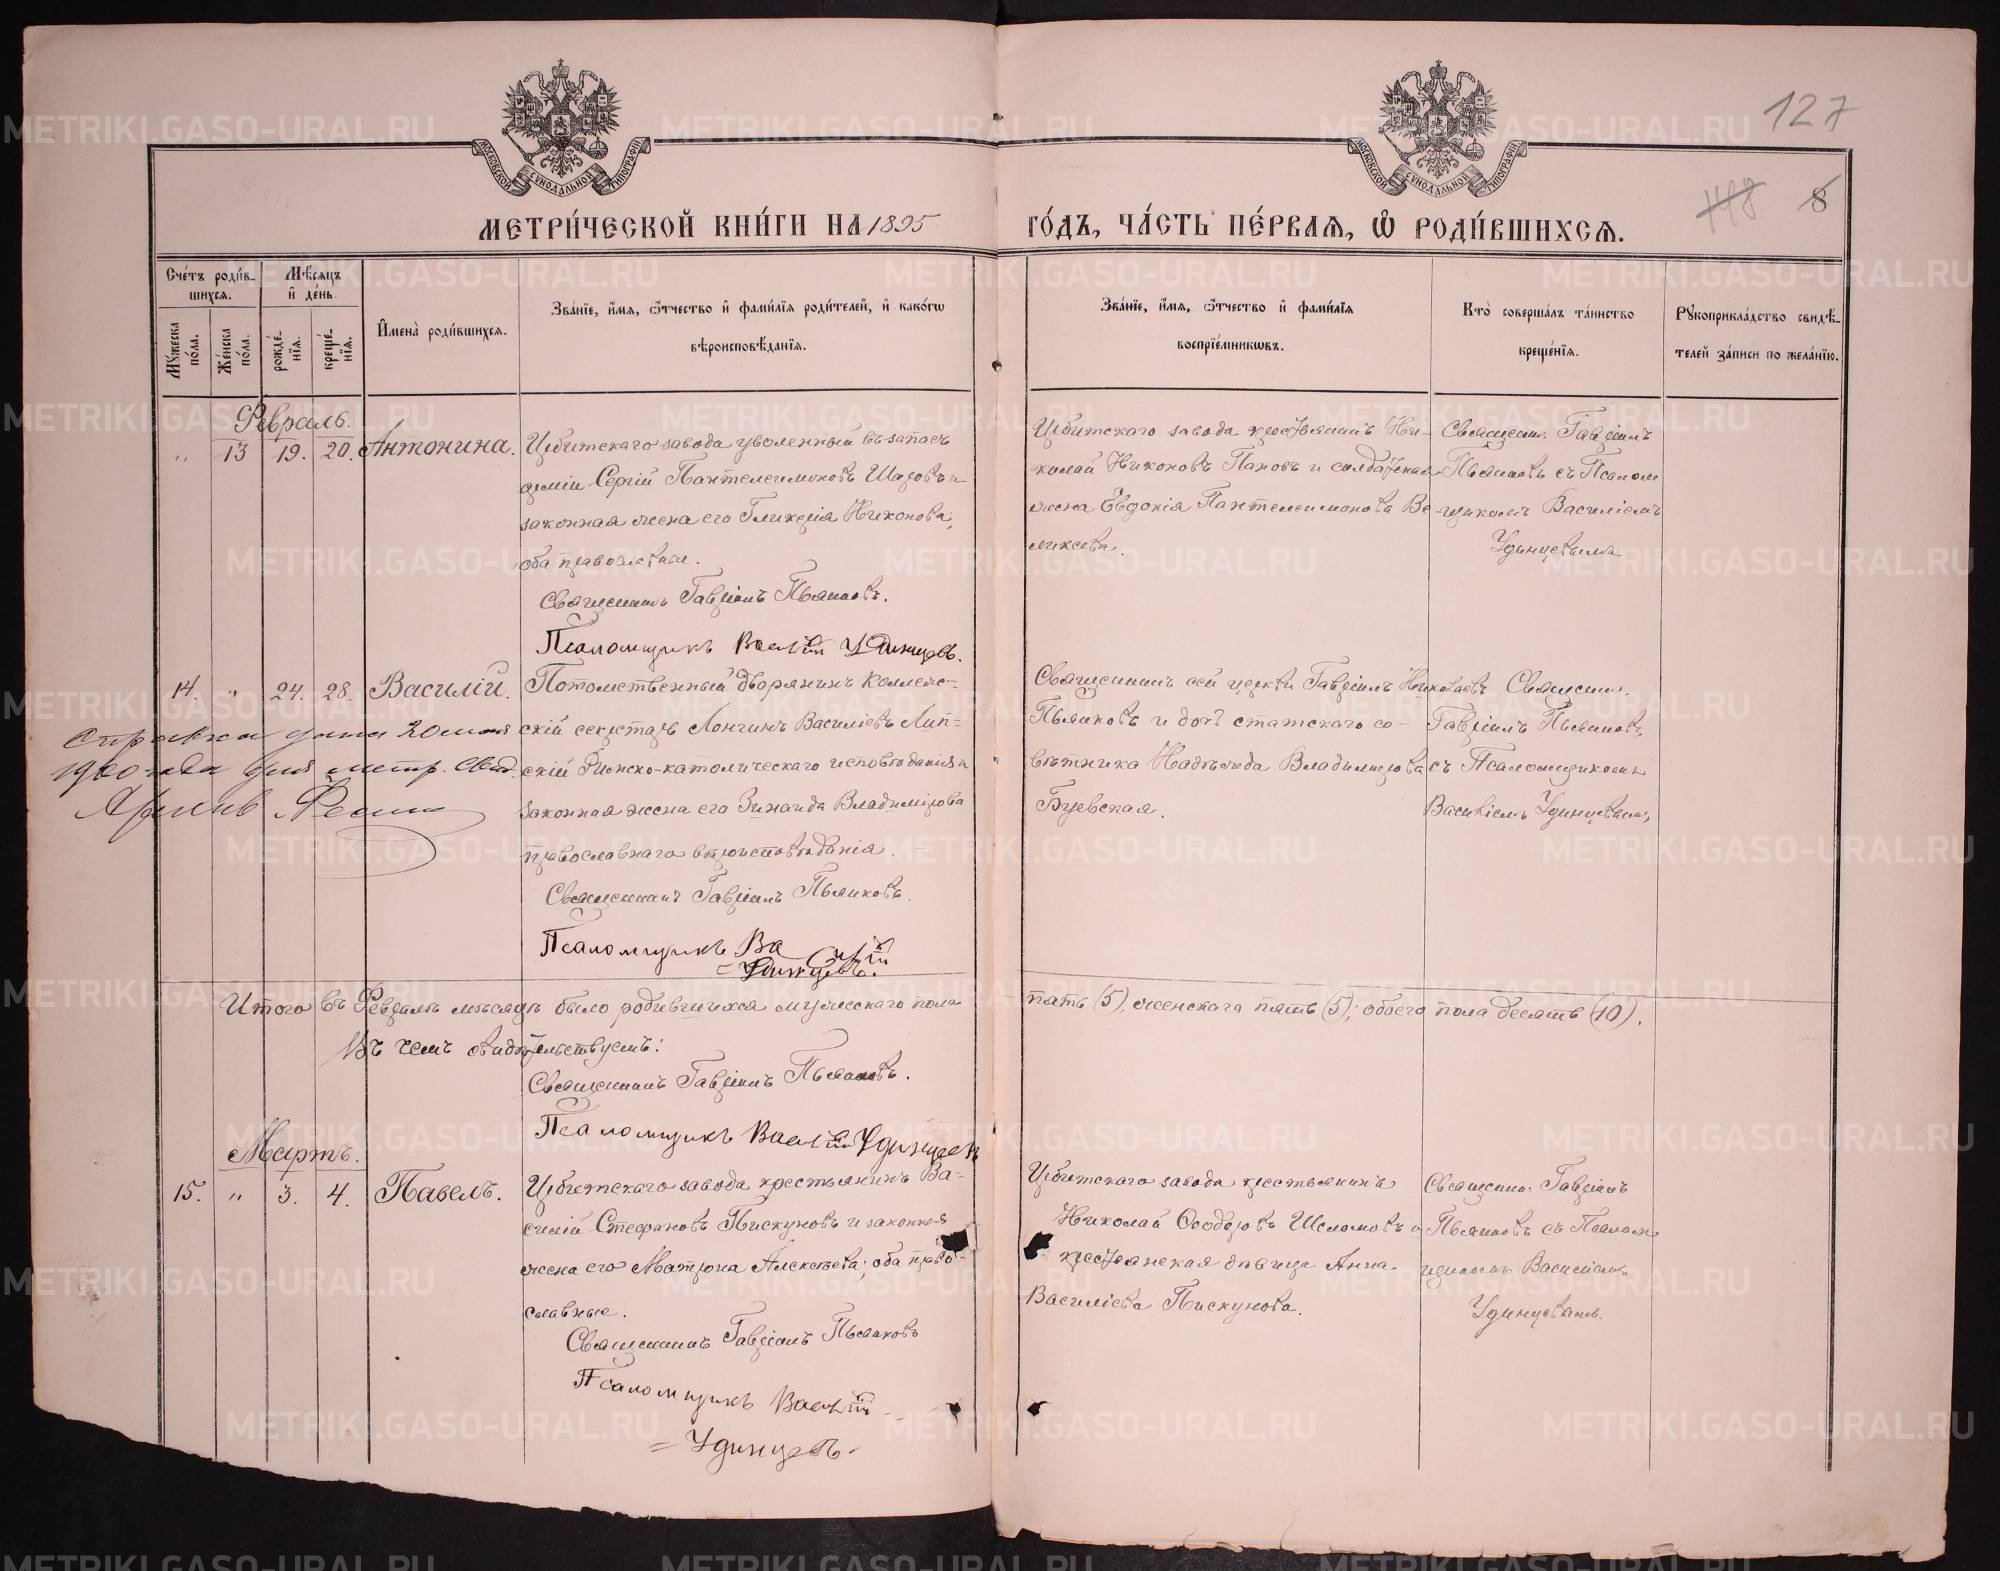 127
118 8
МОСКОВСКОЙ СУНОДАЛЬНОЙ ТИПОГРАФІИ
МОСКОВСКОЙ СУНОДАЛЬНОЙ ТИПОГРАФІИ
МЕТРИ́ЧЕСКОЙ КНИ́ГИ НА 1895
ГО́ДЪ, ЧА́СТЬ ПЕ́РВАЯ, Ѡ҆ РОДИ́ВШИХСЯ.
Сче́тъ роди́в-
шихся.
Мѣ́сяцъ
и҆ де́нь.
Мꙋ́жеска по́ла.
Же́нска по́ла.
рожде́-
нїя.
креще́-
нїя.
И҆мена̀ роди́вшихся.
Зва́нїе, и҆́мя, ѻ҆́тчество и҆ фами́лїя роди́телей, и҆ како́гѡ
вѣроисповѣ́данїя.
Зва́нїе, и҆́мя, ѻ҆́тчество и҆ фами́лїя
воспрїе́мникѡвъ.
Кто̀ соверша́лъ та́инство
креще́нїя.
Рꙋкоприкла́дство свидѣ́-
телей за́писи по жела́нїю.
Февраль.
„ 13 19. 20. Антонина.
Ирбитскаго завода уволенный въ запасъ
арміи Сергій Пантелеимоновъ и
законная жена его Гликерія Никонова,
оба православные.
Священникъ Гавріилъ Пьянковъ.
Псаломщикъ Василій Удинцевъ.
Ирбитскаго завода крестьянинъ Ни-
колай Никоновъ Пановъ и солдатская
жена Евдокія Пантелеимонова
Священ. Гавріилъ
Пьянковъ съ Псалом
щикомъ Василіемъ
Удинцевымъ
14. „ 24. 28. Василій.
Потомственный дворянинъ Коллеж-
скій секретарь Лонгинъ Василіевъ Лип-
скій Римско-католическаго исповѣданія и
законная жена его Зинаида Владимірова
православнаго вѣроисповѣданія.
Священникъ Гавріилъ Пьянковъ.
Псаломщикъ Василій
= Удинцевъ.
Справка дана 20 мая
1900 года для метр. Свид.
Священникъ сей церкви Гавріилъ Николаевъ
Пьянковъ и дочь статскаго со-
вѣтника Надежда Владимірова
Буевская.
Священн.
Гавріилъ Пьянковъ,
съ Псаломщикомъ
Василіемъ Удинцевым,
Итого въ Февралѣ мѣсяцѣ было родившихся мужескаго пола
пять (5), женскаго пять (5); обоего пола десять (10).
Въ чемъ свидѣтельствуемъ:
Священникъ Гавріилъ Пьянковъ.
Псаломщикъ Василій Удинцевъ
Мартъ.
15. „ 3. 4. Павелъ.
Ирбитскаго завода крестьянинъ Ва-
силій Стефановъ Пискуновъ и законная
жена его Матрона Алексѣева; оба право-
славные.
Священникъ Гавріилъ Пьянковъ
Псаломщикъ Василій
= Удинцевъ.
Ирбитскаго завода крестьянинъ
Николай Ѳеодоровъ Шеломовъ и
крестьянская дѣвица Анна
Василіева Пискунова.
Священн. Гавріилъ
Пьянковъ съ Псалом
щикомъ Василіем.
Удинцевым.
METRIKI.GASO-URAL.RU